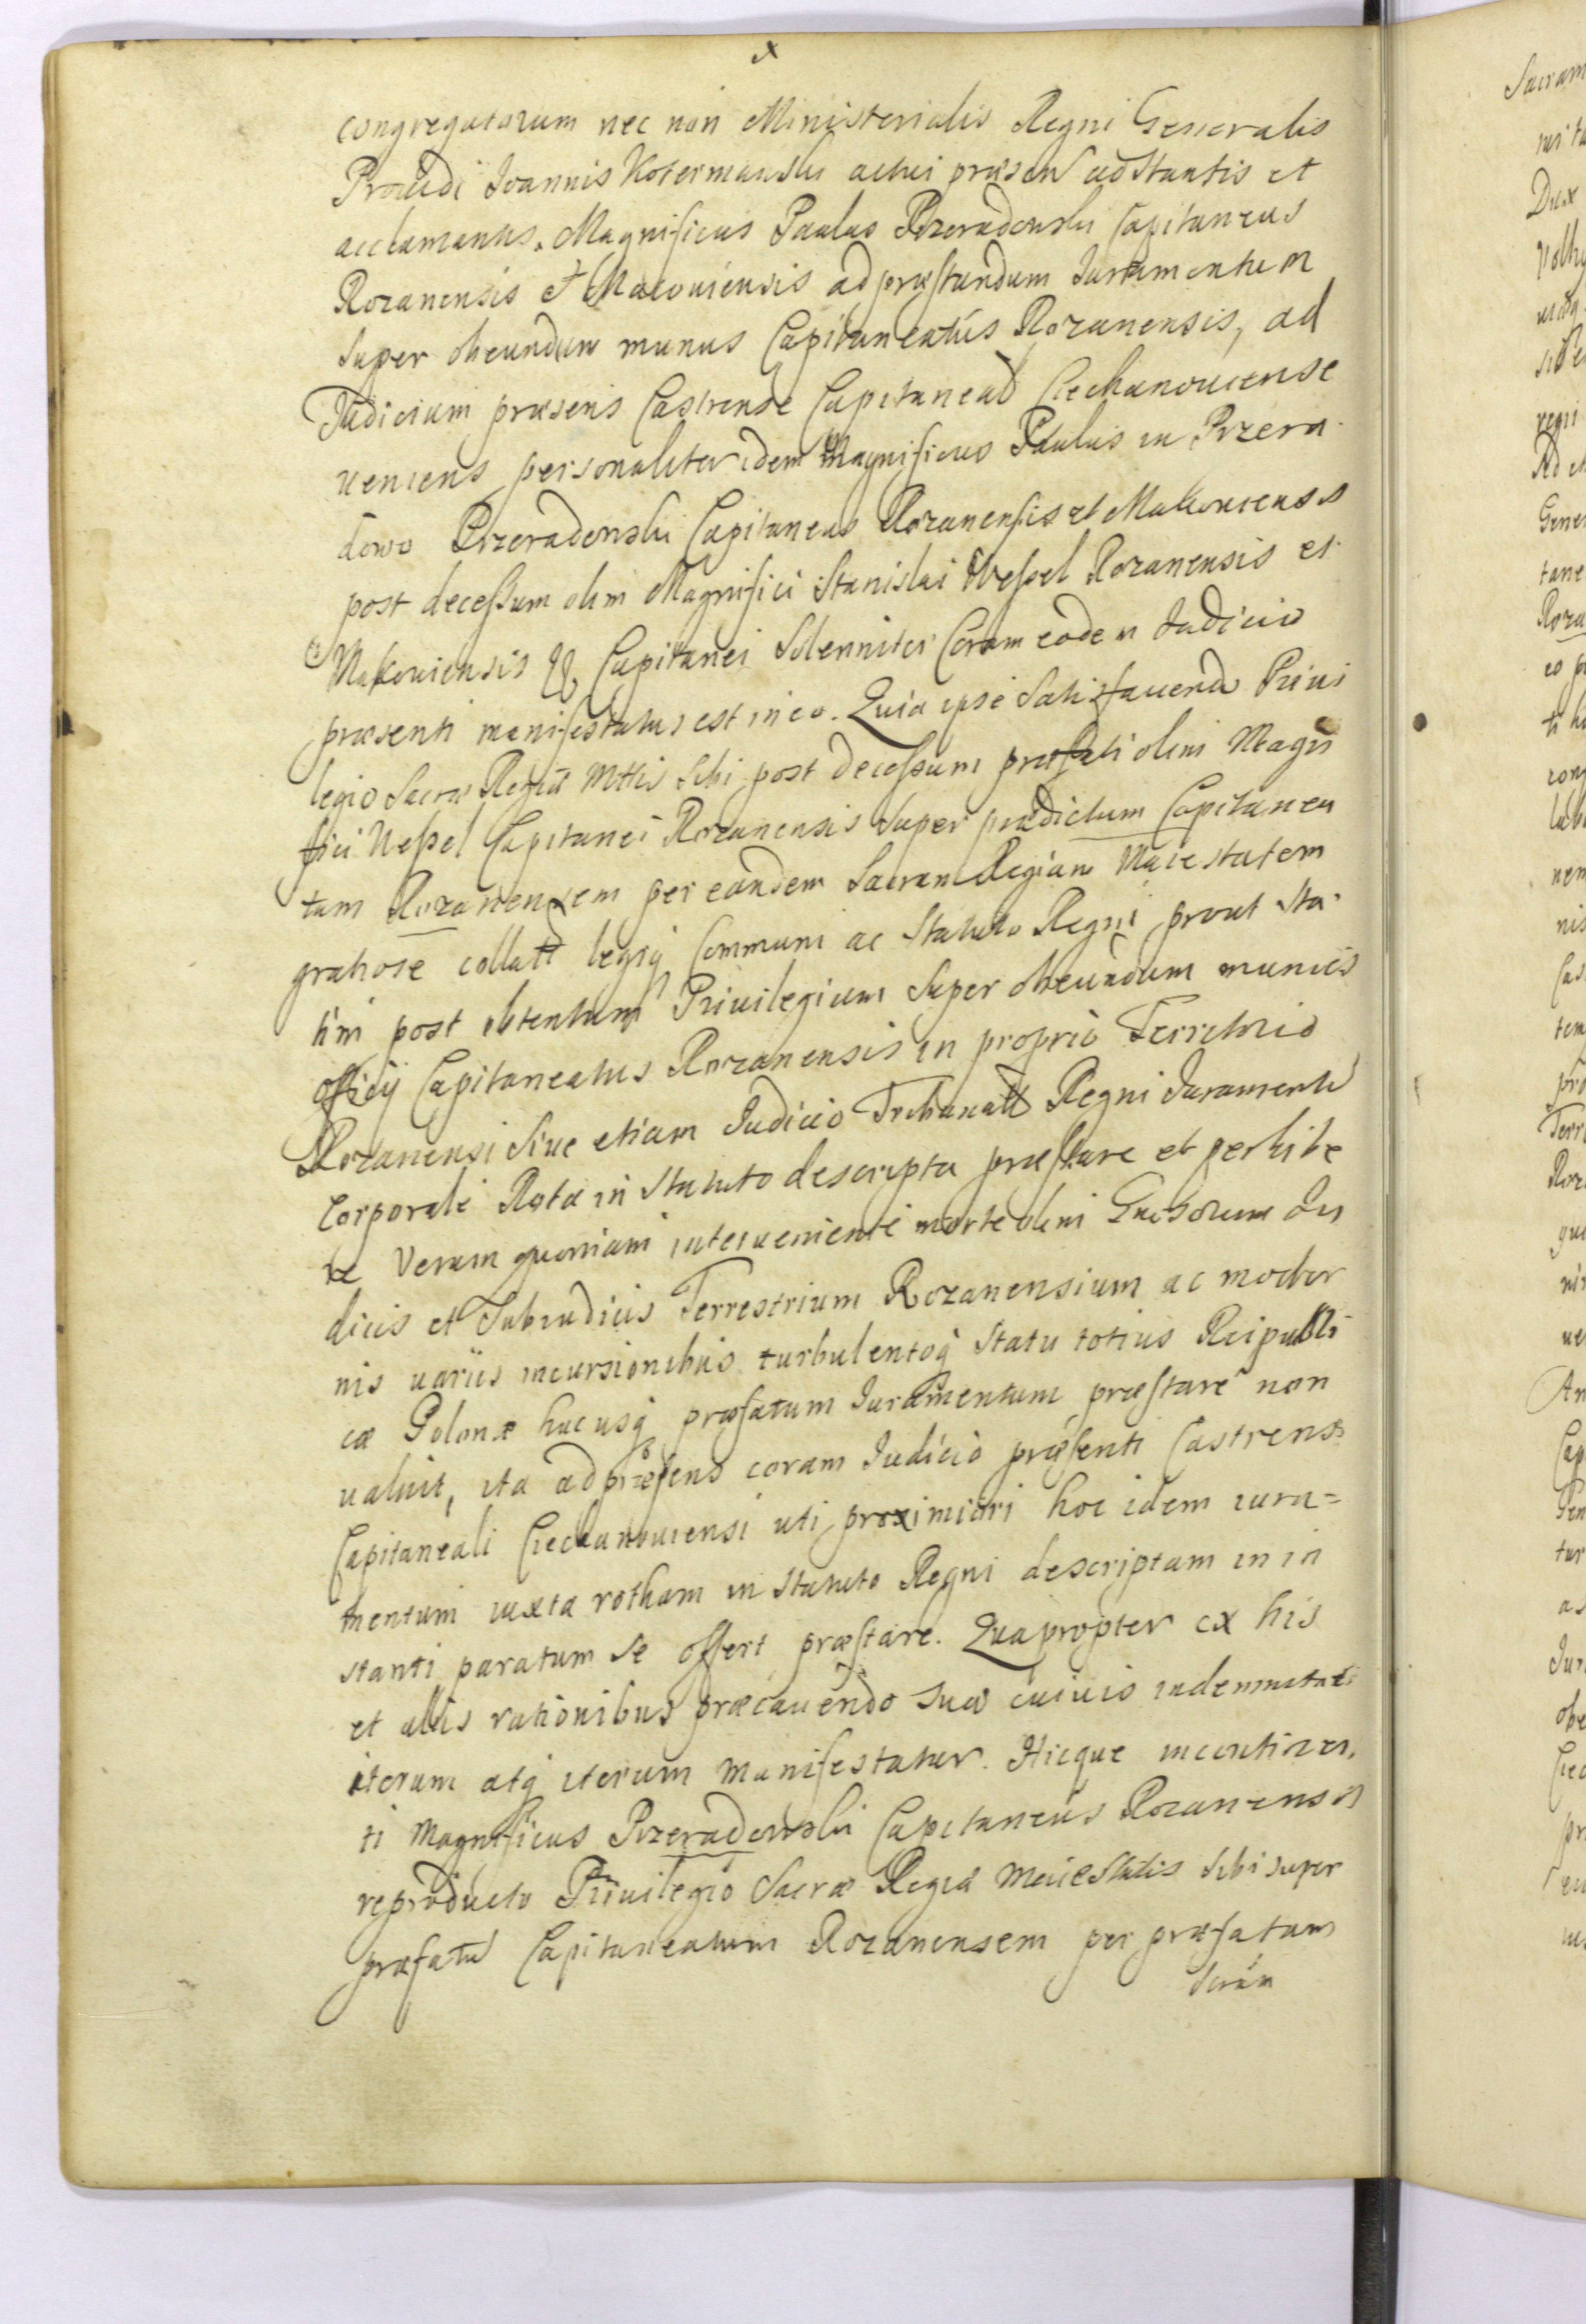 congregatorum nec non Ministerialis Regni Generalis
Providi Ioannis Kotermanski actui præsen adstantis et
acclamantis. Magnificus Paulus Przeradowski Capitaneus
Rozanensis et Makouiensis ad præstandum Iuramentum
super obeundum munus Capitaneatus Rozanensis, ad
Iudicium præsens Castrense Capitaneal Ciechanouiense
ueniens personaliter idem Magnificus Paulus in Przera
dowo Przeradowski Capitaneus Rozanensis et Makouiensis
post decessum olim Magnifici Stanislai Wessel Rozanensis et
Makouiensis Capitanei Solenniter Coram eodem Iudicio
præsenti manifestatus est in eo. Quia ipse Satisfaciendo Priui
legio Sacræ Regiæ Mttis Sibi post decessum præfati olim Magni
fici Wessel Capitanei Rozanensis Super prædictum Capitanea
tum Rozanensem per eandem Sacram Regiam Maiestatem
gratiose collato legiq Communi ac Statuto Regni prout sta
tim post obtentum Priuilegium Super obeundum munus
officij Capitaneatus Rozanensis in proprio Territorio
Rozanensi Siue etiam Iudicio Tribunali Regni Iuramento
Corporale Rotæ in Statuto descripta præstare et perhibe
re Verum quoniam interueniente morte olim Gnosorum Iu
dicis et Subiudicis Terrestrium Rozanensium ac moder
nis uarijs incursionibus turbulentoq Statu totius Reipubli
cæ Polonæ hucusq præfatum Iuramentum præstare non
ualuit, ita ad præsens coram Iudicio præsenti Castrensi
Capitaneali Ciechanouiensi uti proximiori hoc idem iura=
mentum iuxta rotham in Statuto Regni descriptam in in
stanti paratum se offert præstare. Quapropter ex his
et alijs rationibus præcauendo suæ cuiuis indemnitati
iterum atq iterum manifestatur. Hicque incontinen,
ti Magnificus Przeradowski Capitaneus Rozanensis
reproducto Priuilegio Sacræ Regiæ Maiestatis Sibi super
præfatu Capitaneatum Rozanensem per præfatam
Sacram